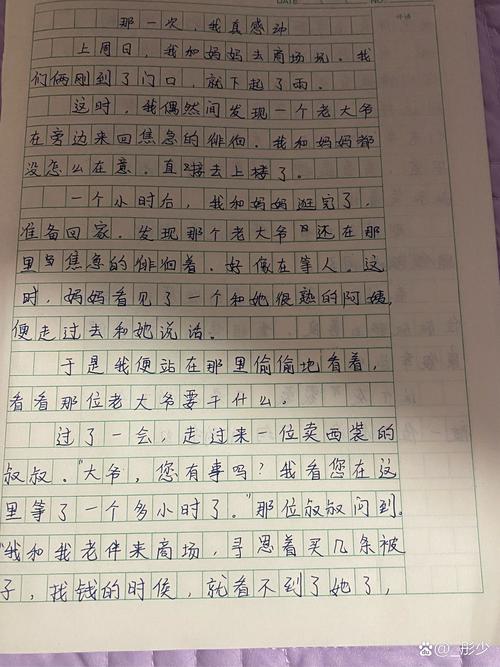 DATE
NO.
评语
那一次，我真感动
上周日，我和妈妈去商场玩。我
们俩刚到了门口，就下起了雨。
这时，我偶然间发现一个老大爷
在旁边来回焦急的徘徊。我和妈妈都
没怎么在意。直接去上楼了。
一个小时后，我和妈妈逛完了，
准备回家。发现那个老大爷还在那
里焦急的徘徊着，好像在等人。这
时，妈妈看见了一个和她很熟的阿姨，
便走过去和她说话。
于是我便站在那里偷偷地看着，
看看那位老大爷要干什么。
过了一会，走过来一位卖西装的
叔叔。“大爷，您有事吗？我看您在这
里等了一个多小时了。”那位叔叔问到。
“我和我老伴来商场，寻思着买几条被
子，找钱的时候，就看不到了她了，
Baidu百度 @_彤少